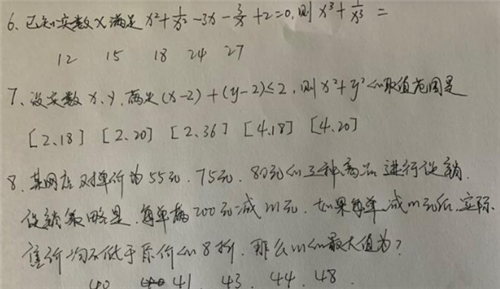 6、已知实数x满足x²+1/x²-3x-3/x+2=0,则x³+1/x³=
12 15 18 24 27
7、设实数x、y、满足(x-2)+(y-2)≤2,则x²+y²的取值范围是
[2.18] [2.20] [2.36] [4.18] [4.20]
8、某网店对单价为55元、75元、80元的三种商品进行促销,
促销策略是,每单满200元减m元、如果每单减m元后,实际
售价均不低于原价的8折,那么m的最大值为?
40 41、43、44、48.